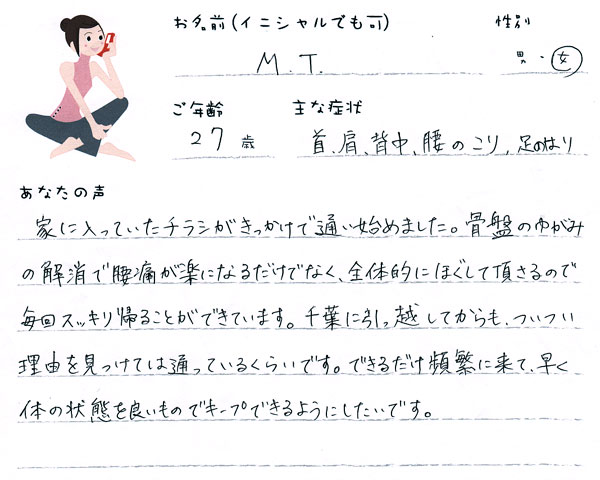 お名前(イニシャルでも可)
性別
M.T.
男・女
ご年齢
主な症状
27歳
首、肩、背中、腰のこり、足のはり
あなたの声
家に入っていたチラシがきっかけで通い始めました。骨盤のゆがみ
の解消で腰痛が楽になるだけでなく、全体的にほぐして頂さるので
毎回スッキリ帰ることができています。千葉に引っ越してからも、ついつい
理由を見つけては通っているくらいです。できるだけ頻繁に来て、早く
体の状態を良いものでキープできるようにしたいです。